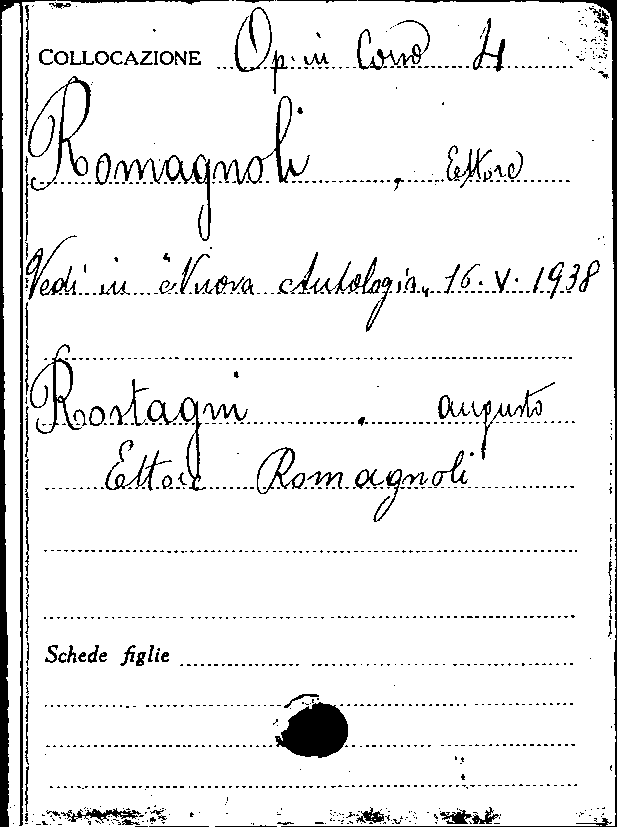 COLLOCAZIONE Op. in Corso 4
Romagnoli, Ettore
Vedi in "Nuova Antologia„ 16. V. 1938
Rostagni. Augusto
Ettore Romagnoli
Schede figlie